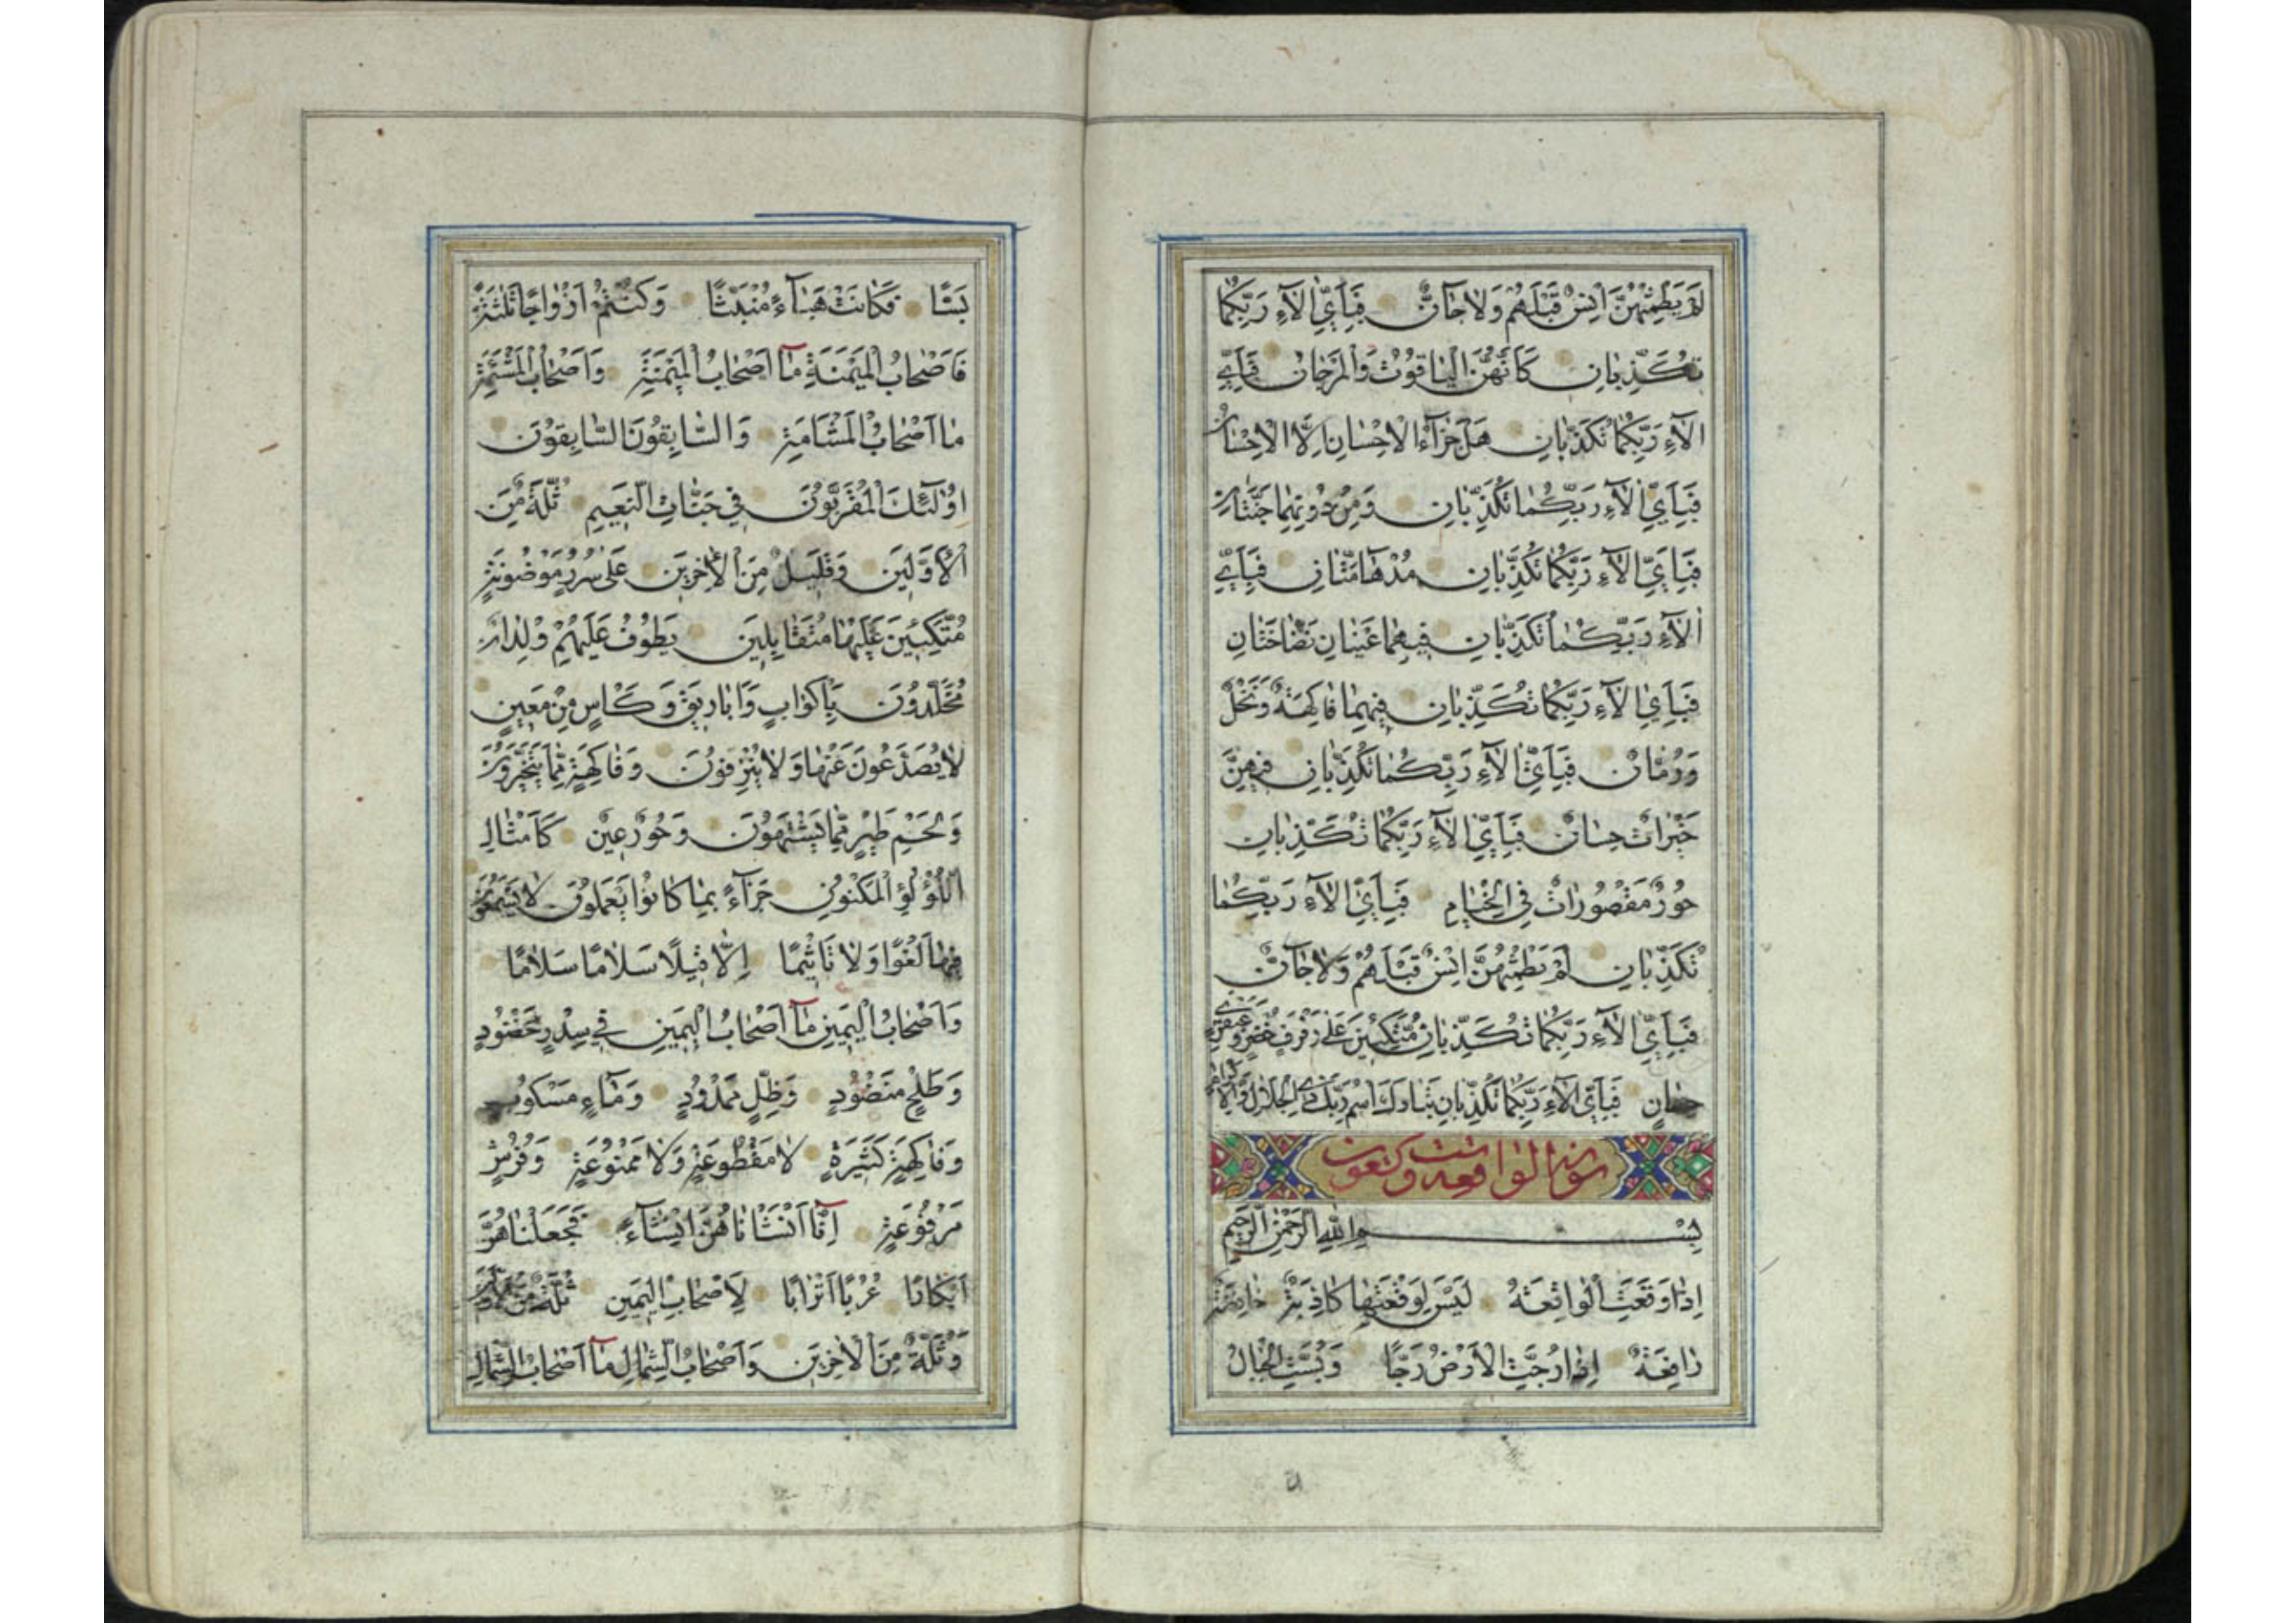 لَمْ يَطْمِثْهُنَّ اِنْسٌ قَبْلَهُمْ وَلَا جَآنٌّ فَبِاَيِّ اٰلَآءِ رَبِّكُمَا
تُكَذِّبَانِ كَاَنَّهُنَّ الْيَاقُوتُ وَالْمَرْجَانُ فَبِاَيِّ
اٰلَآءِ رَبِّكُمَا تُكَذِّبَانِ هَلْ جَزَآءُ الْاِحْسَانِ اِلَّا الْاِحْسَانُ
فَبِاَيِّ اٰلَآءِ رَبِّكُمَا تُكَذِّبَانِ وَمِنْ دُونِهِمَا جَنَّتَانِ
فَبِاَيِّ اٰلَآءِ رَبِّكُمَا تُكَذِّبَانِ مُدْهَآمَّتَانِ فَبِاَيِّ
اٰلَآءِ رَبِّكُمَا تُكَذِّبَانِ فِيهِمَا عَيْنَانِ نَضَّاخَتَانِ
فَبِاَيِّ اٰلَآءِ رَبِّكُمَا تُكَذِّبَانِ فِيهِمَا فَاكِهَةٌ وَنَخْلٌ
وَرُمَّانٌ فَبِاَيِّ اٰلَآءِ رَبِّكُمَا تُكَذِّبَانِ فِيهِنَّ
خَيْرَاتٌ حِسَانٌ فَبِاَيِّ اٰلَآءِ رَبِّكُمَا تُكَذِّبَانِ
حُورٌ مَقْصُورَاتٌ فِي الْخِيَامِ فَبِاَيِّ اٰلَآءِ رَبِّكُمَا
تُكَذِّبَانِ لَمْ يَطْمِثْهُنَّ اِنْسٌ قَبْلَهُمْ وَلَا جَآنٌّ
فَبِاَيِّ اٰلَآءِ رَبِّكُمَا تُكَذِّبَانِ مُتَّكِئِينَ عَلٰى رَفْرَفٍ خُضْرٍ وَعَبْقَرِيٍّ
حِسَانٍ فَبِاَيِّ اٰلَآءِ رَبِّكُمَا تُكَذِّبَانِ تَبَارَكَ اسْمُ رَبِّكَ ذِي الْجَلَالِ وَالْاِكْرَامِ
سورة الواقعه ست وتسعون
بِسْمِ اللّٰهِ الرَّحْمٰنِ الرَّحِيمِ
اِذَا وَقَعَتِ الْوَاقِعَةُ لَيْسَ لِوَقْعَتِهَا كَاذِبَةٌ خَافِضَةٌ
رَافِعَةٌ اِذَا رُجَّتِ الْاَرْضُ رَجًّا وَبُسَّتِ الْجِبَالُ
بَسًّا فَكَانَتْ هَبَآءً مُنْبَثًّا وَكُنْتُمْ اَزْوَاجًا ثَلٰثَةً
فَاَصْحَابُ الْمَيْمَنَةِ مَآ اَصْحَابُ الْمَيْمَنَةِ وَاَصْحَابُ الْمَشْئَمَةِ
مَا اَصْحَابُ الْمَشْاَمَةِ وَالسَّابِقُونَ السَّابِقُونَ
اُولٰٓئِكَ الْمُقَرَّبُونَ فِي جَنَّاتِ النَّعِيمِ ثُلَّةٌ مِنَ
الْاَوَّلِينَ وَقَلِيلٌ مِنَ الْاٰخِرِينَ عَلٰى سُرُرٍ مَوْضُونَةٍ
مُتَّكِئِينَ عَلَيْهَا مُتَقَابِلِينَ يَطُوفُ عَلَيْهِمْ وِلْدَانٌ
مُخَلَّدُونَ بِاَكْوَابٍ وَاَبَارِيقَ وَكَاْسٍ مِنْ مَعِينٍ
لَا يُصَدَّعُونَ عَنْهَا وَلَا يُنْزِفُونَ وَفَاكِهَةٍ مِمَّا يَتَخَيَّرُونَ
وَلَحْمِ طَيْرٍ مِمَّا يَشْتَهُونَ وَحُورٌ عِينٌ كَاَمْثَالِ
اللُّؤْلُؤِ الْمَكْنُونِ جَزَآءً بِمَا كَانُوا يَعْمَلُونَ لَا يَسْمَعُونَ
فِيهَا لَغْوًا وَلَا تَاْثِيمًا اِلَّا قِيلًا سَلَامًا سَلَامًا
وَاَصْحَابُ الْيَمِينِ مَآ اَصْحَابُ الْيَمِينِ فِي سِدْرٍ مَخْضُودٍ
وَطَلْحٍ مَنْضُودٍ وَظِلٍّ مَمْدُودٍ وَمَآءٍ مَسْكُوبٍ
وَفَاكِهَةٍ كَثِيرَةٍ لَا مَقْطُوعَةٍ وَلَا مَمْنُوعَةٍ وَفُرُشٍ
مَرْفُوعَةٍ اِنَّآ اَنْشَاْنَاهُنَّ اِنْشَآءً فَجَعَلْنَاهُنَّ
اَبْكَارًا عُرُبًا اَتْرَابًا لِاَصْحَابِ الْيَمِينِ ثُلَّةٌ مِنَ الْاَوَّلِينَ
وَثُلَّةٌ مِنَ الْاٰخِرِينَ وَاَصْحَابُ الشِّمَالِ مَآ اَصْحَابُ الشِّمَالِ